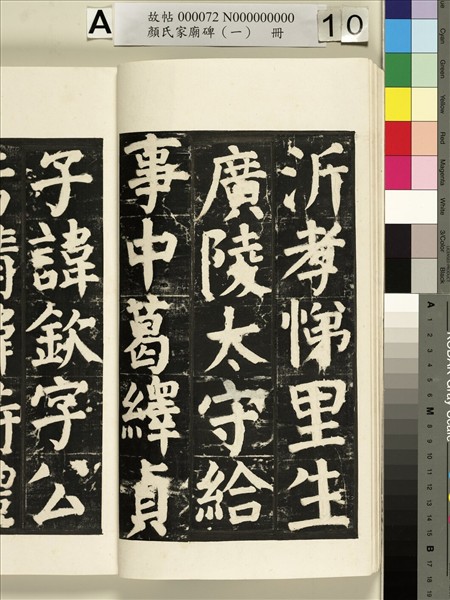 A
故帖 000072 N000000000
顏氏家廟碑（一） 冊
10
沂孝悌里生
廣陵太守給
事中葛繹貞
子諱欽字公
Cyan
Green
Yellow
Red
Magenta
White
3/Color
Black
A
1
2
3
4
5
6
M
8
9
10
11
12
13
14
15
B
17
18
19